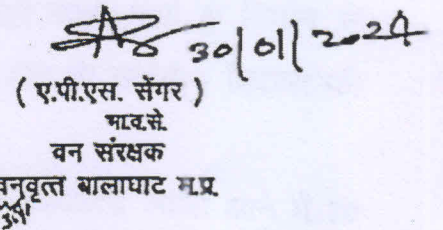 30/01/2024
( ए.पी.एस. सेंगर )
भा.व.से.
वन संरक्षक
वनवृत्त बालाघाट म.प्र.